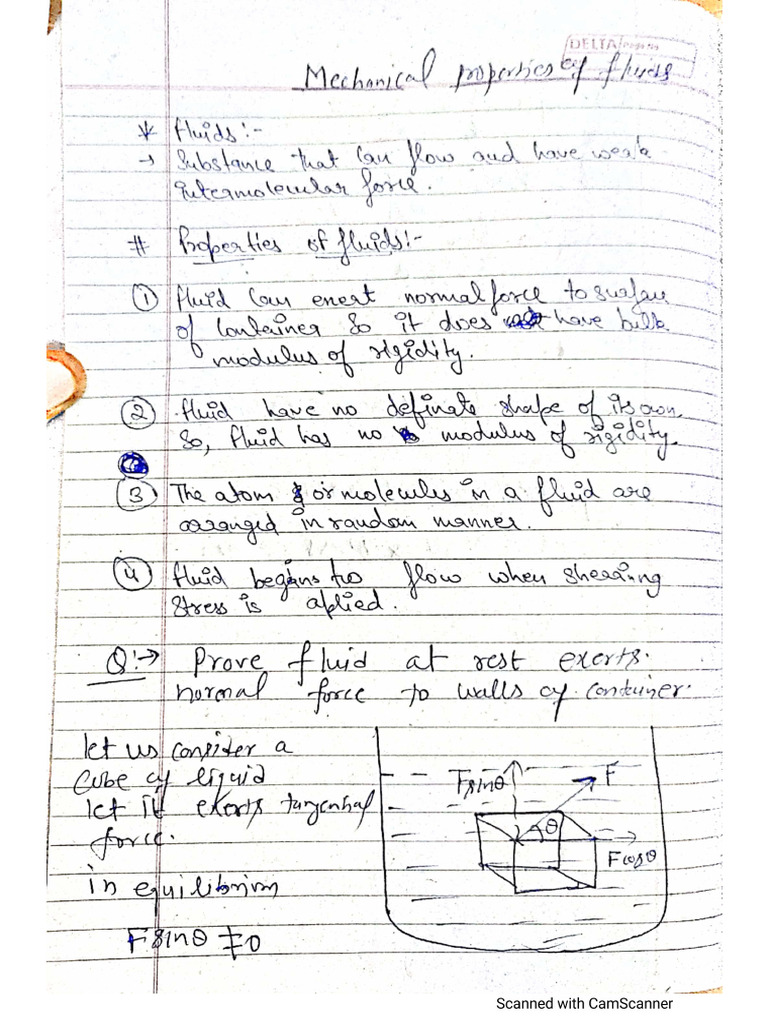 DELTA
Mechanical properties of fluids
* fluids:-
→ Substance that can flow and have weak
intermolecular force.
# Properties of fluids:-
① fluid can enert normal force to surface
of container so it does have bulk
modulus of rigidity.
② fluid have no definate shape of its own
So, fluid has no modulus of rigidity.
③ The atom or molecules in a fluid are
arranged in random manner.
④ fluid begins to flow when shearing
stress is aplied.
Q:→ Prove fluid at rest exerts
normal force to walls of container.
let us consider a
cube of liquid
let it exerts tangenhal
force.
in equilibrium
F sinθ ≠ 0
Fsinθ
F
θ
Fcosθ
Scanned with CamScanner